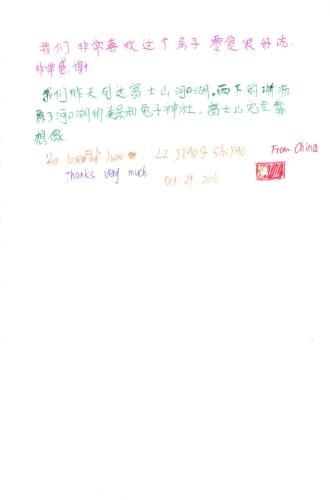 我们非常喜欢这个房子 零食很好吃.
非常感谢!
我们昨天到达富士山河口湖,雨下的淋沥
了河口湖的美和兔子神社,富士山完全靠
想像
We loved here. LI JIAO & SHIYAO From China
Thanks very much. Oct. 29 2016